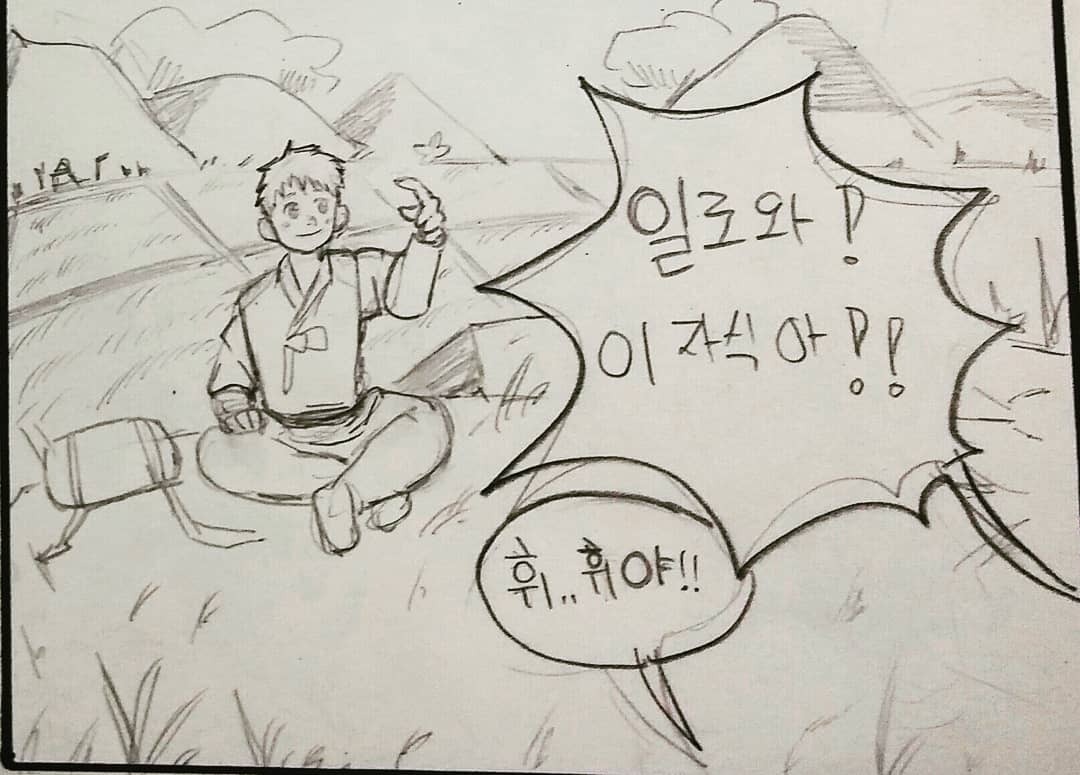 일로와!
이 자식아!!
휘..휘야!!